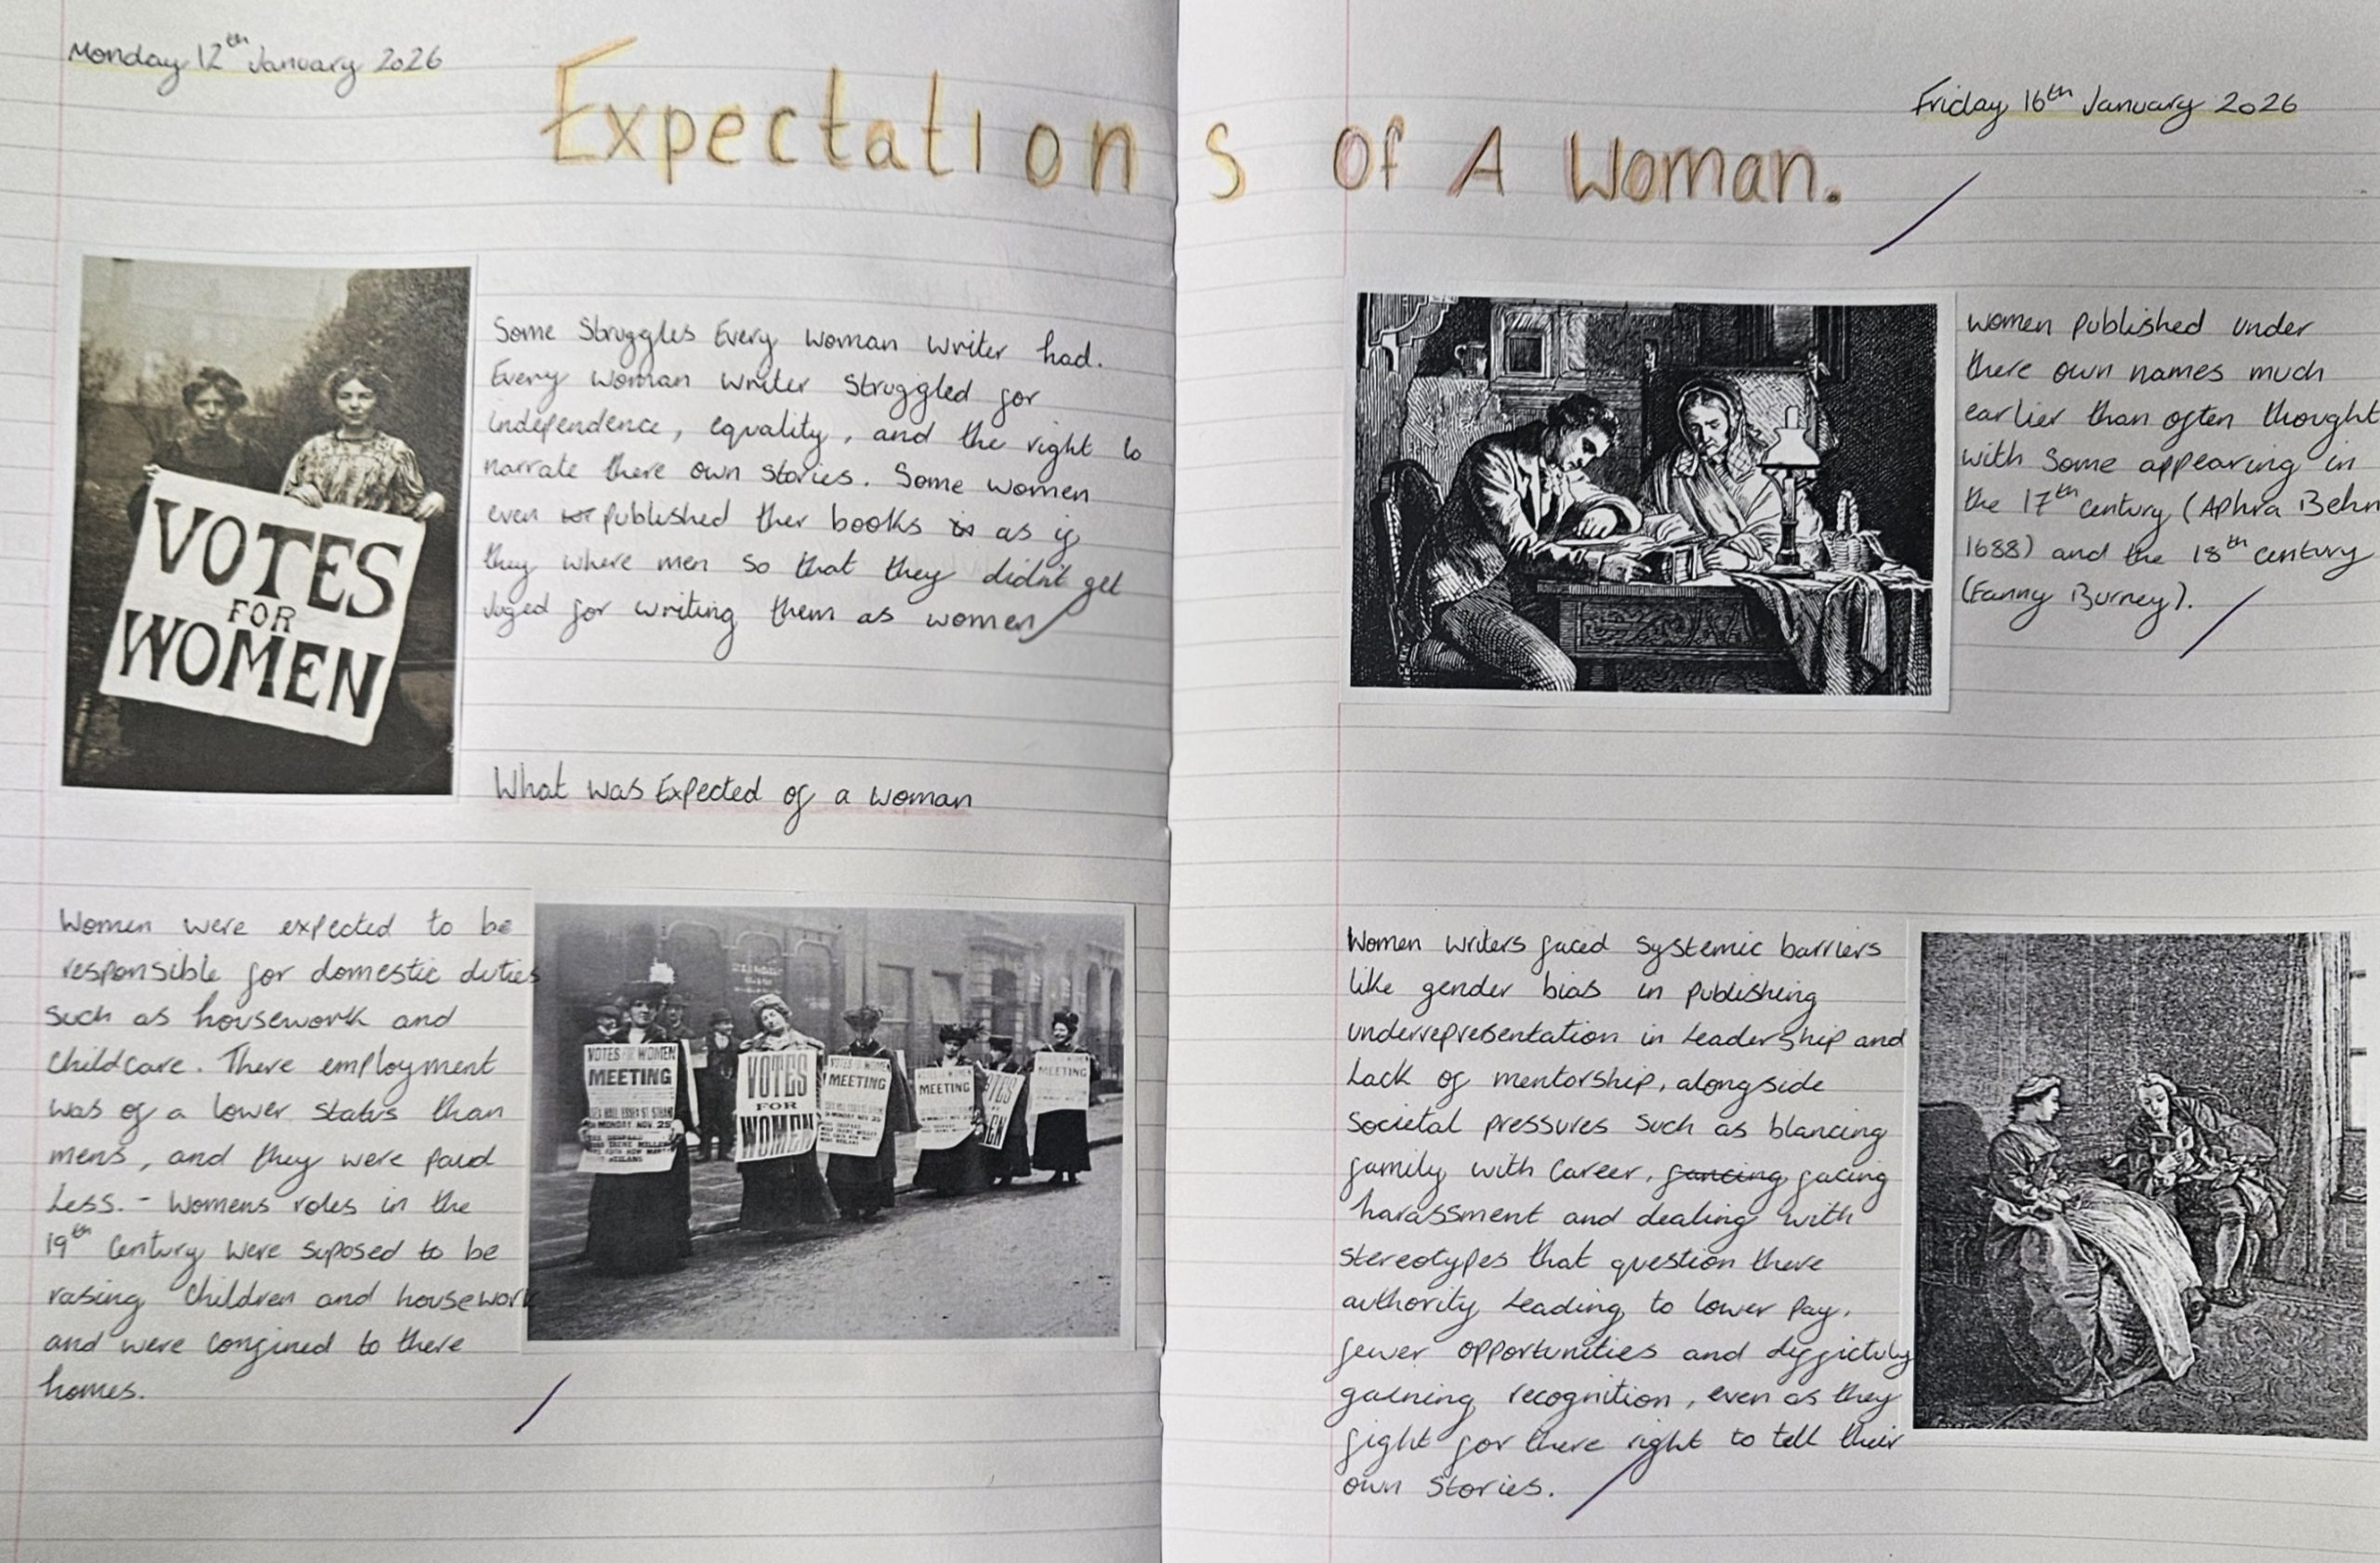 Monday 12th January 2026
Friday 16th January 2026
Expectations Of A Woman.
VOTES
FOR
WOMEN
Some Struggles Every woman writer had.
Every woman writer struggled for
independence, equality, and the right to
narrate there own stories. Some women
even published ther books as if
they where men so that they didn't get
juged for writing them as women
What was Expected of a woman
Women were expected to be
responsible for domestic duties
such as housework and
childcare. There employment
was of a lower status than
mens, and they were paid
Less. - Womens roles in the
19th Century were suposed to be
rasing children and housework
and were confined to there
homes.
VOTES FOR WOMEN
MEETING
ESSEX HALL ESSEX ST STRAND
MONDAY NOV. 25
VOTES
FOR
WOMEN
VOTES FOR WOMEN
MEETING
MONDAY NOV 25
MEETING
MEETING
women published under
there own names much
earlier than often thought
with some appearing in
the 17th century (Aphra Behn
1688) and the 18th century
(Fanny Burney).
Women writers faced systemic barriers
like gender bias in publishing
underrepresentation in Leadership and
Lack of mentorship, alongside
societal pressures such as blancing
family with career, fancing facing
harassment and dealing with
stereotypes that question there
authority Leading to lower pay,
fewer opportunities and difficulty
gaining recognition, even as they
fight for there right to tell their
own stories.